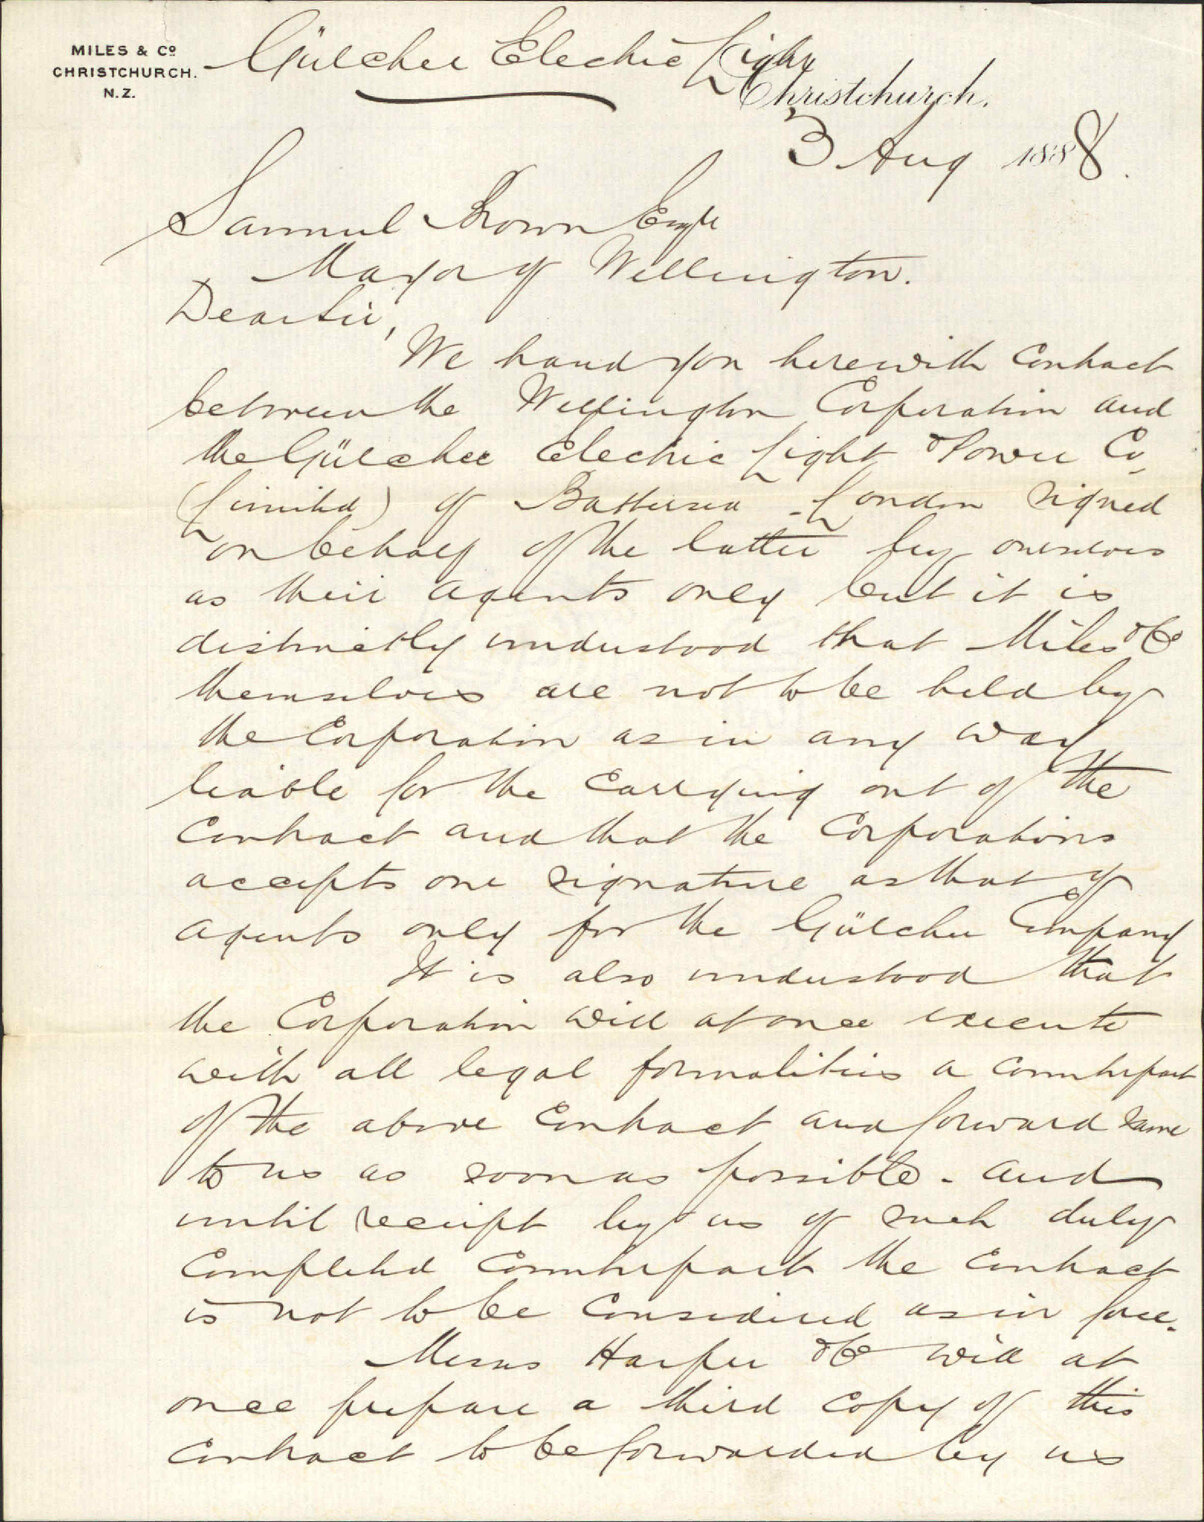 MILES & Co
CHRISTCHURCH.
N.Z.
Gülcher Electric Light
Christchurch,
3 Aug 1888.
Samuel Brown Esqre
Mayor of Wellington.
Dear Sir,
We hand you herewith Contract
between the Wellington Corporation and
the Gülcher Electric Light & Power Co,
(Limited) of Battersea - London signed
on behalf of the latter by ourselves
as their agents only but it is
distinctly understood that Miles & Co
themselves are not to be held by
the Corporation as in any way
liable for the carrying out of the
Contract and that the Corporations
accepts our signature as that of
agents only for the Gülcher Company
It is also understood that
the Corporation will at once execute
with all legal formalities a counterpart
of the above Contract and forward same
to us as soon as possible - and
until receipt by us of such duly
Completed Counterpart the Contract
is not to be Considered as in force.
Messrs Harper & Co will at
once prepare a third copy of this
Contract to be forwarded by us